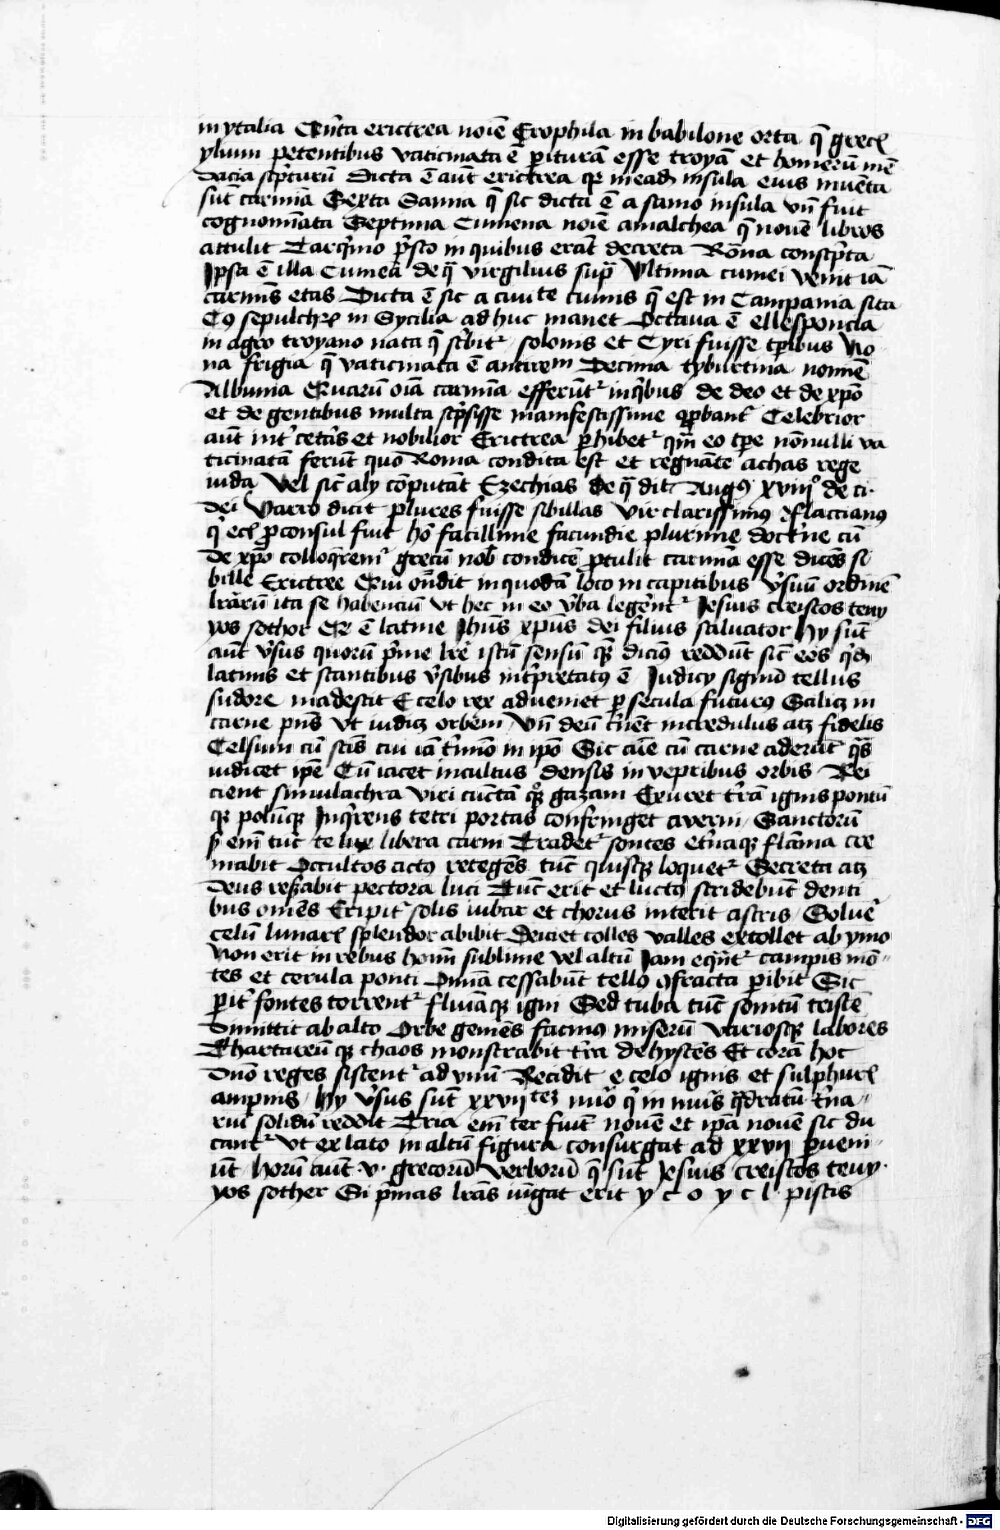 in ytalia Qu̅ta erictrea noīe Erophila in babilone orta q̄ grecꝭ
ylium petentibus vaticinata ē ꝑiturā esse troyā et homerū mē
dacia scͥpturū Dicta ē aūt erictrea qꝛ in eadē insula eius inuēta
sūt carmīa Sexta Samia q̄ sic dicta ē a samo insula vn̄ fuit
cognomīata Septima Cumena noīe amalthea q̄ nouē libros
attulit Tarqͥnio pͥsco in quibus erāt decreta Rōna conscͥpta
Ipsa ē illa Cumea de qͣ virgilius supͣ Vltima cumei venit iā
carmīs etas Dicta ē sic a ciuite cumis q̄ est in Campania sita
Cꝰ sepulchꝝ in Sycilia ad huc manet Octaua ē ellesponcia
in agro troyano nata q̄ scͥbitᷣ solonis et Cyri fuisse tꝑibus No
na frigia q̄ vaticinata ē anticem Decima tyburtina nomīe
Albunia Quarū oīa carmīa efferūtᷣ inqͥbus de deo et de xp̄o
et de gentibus multa scͥpsisse manifestissime ꝓbantᷣ Celebrior
aūt intᷣ cetāˢ et nobilior Erictrea ꝑhibetᷣ qm̄ eo tꝑe nōnulli va
ticinatā ferūt quo Roma condita est et regnāte achas rege
iuda vel sic̄ aly cōputāt Ezechias De q̄ dit Augꝰ xviijº de ci.
dei Varro dicit plures fuisse sibillas Vir clarissimꝰ flaccianus
qͥ ecͥ ꝓconsul fuit hō facillime facundie plurime doctͥne cū
de xp̄o colloqͥremᷣ grecū nob̄ condicē ꝓtulit carmīa esse dicēs si
bille Erictree Qui on̄dit in quodā loco in capitibus v̓suū ordinē
lrārū ita se habenciū vt hec in eo v̓ba legerentᷣ Jesuis creistos teuy
yos sother Qͥ ē latine Jhūs xp̄us dei filius saluator Hy sūt
aūt v̓sus quorū pͥme lr̄e istū sensū qͣꝫ dicimꝰ reddūt sic̄ eos qͥdā
latinis et stantibus v̓sibus intͥpretatꝰ ē Judicij signū tellus
sudore madescit E celo rex adueniet ꝑ secula futurꝰ Scilicꝫ in
carne pn̄s vt iudicꝫ orbem Vn̄ deū cͥnēt incredulus atqꝫ fidelis
Celsum cū scīs cui iā tͥmino in ipō Sic aīe cū carne aderūt qͣˢ
iudicet ip̄e Cū iacet incultus densis in vepribus orbis Rei
cient simulachra viri cūctā qꝫ gazam Exuret trͣā ignis pontū
qꝫ polūqꝫ Inqͥrens tetri portas confringet averni Sanctorū
sꝫ em̄ tūc te lux libera carni Tradetᷣ sontes etͥnaqꝫ flāma cre
mabit Occultos actꝰ retegēs tūc quisqꝫ loquetᷣ Secreta atqꝫ
deus reserabit pectora luci Tūc erit et luctꝰ stridebūt denti
bus omēs Eripitᷣ solis iubar et chorus interit astris Soluet̓
celū lunarꝭ splendor abibit Deiciet colles valles extollet ab ymo
Non erit in rebus homī sublime vel altū Jam equātᷣ campis mō-
tes et cerula ponti Omīa cessabūt tellꝰ ↄfracta ꝑibit Sic
ꝑitᷣ fontes torrentᷣ fluuiāqꝫ igni Sed tuba tūc sonitū tristē
dimittit ab alto Orbe gemēs facinꝰ miserū variosqꝫ labores
Thartareū qꝫ chaos monstrabit trͣa dehystēs Et corā hoc
dn̄o reges sistentᷣ ad vnū Recidit e celo ignis et sulphurꝭ
ampnis Hy v̓sus sūt xxvijtē nūo qͥ in nuīs qͣdratū tͥna-
riū solidū reddit Tria em̄ ter fiūt nouē et ipa nouē sic du
cantᷣ vt ex lato in altū figura consurgat ad xxvij ꝑueni
ūt horū aūt .v. grecorū verborū q̄ sūt Jesuis creistos teuy.
yos sother Si pͥmas lrās iūgat erit y c o y c l piscis